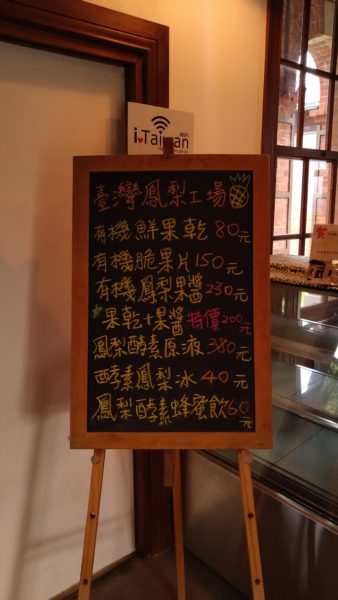 iTaiwan
WiFi
臺灣鳳梨工場
有機鮮果乾80元
有機脆果片150元
有機鳳梨果醬230元
果乾+果醬特價200元
鳳梨酵素原液380元
酵素鳳梨冰40元
鳳梨酵素蜂蜜飲60元